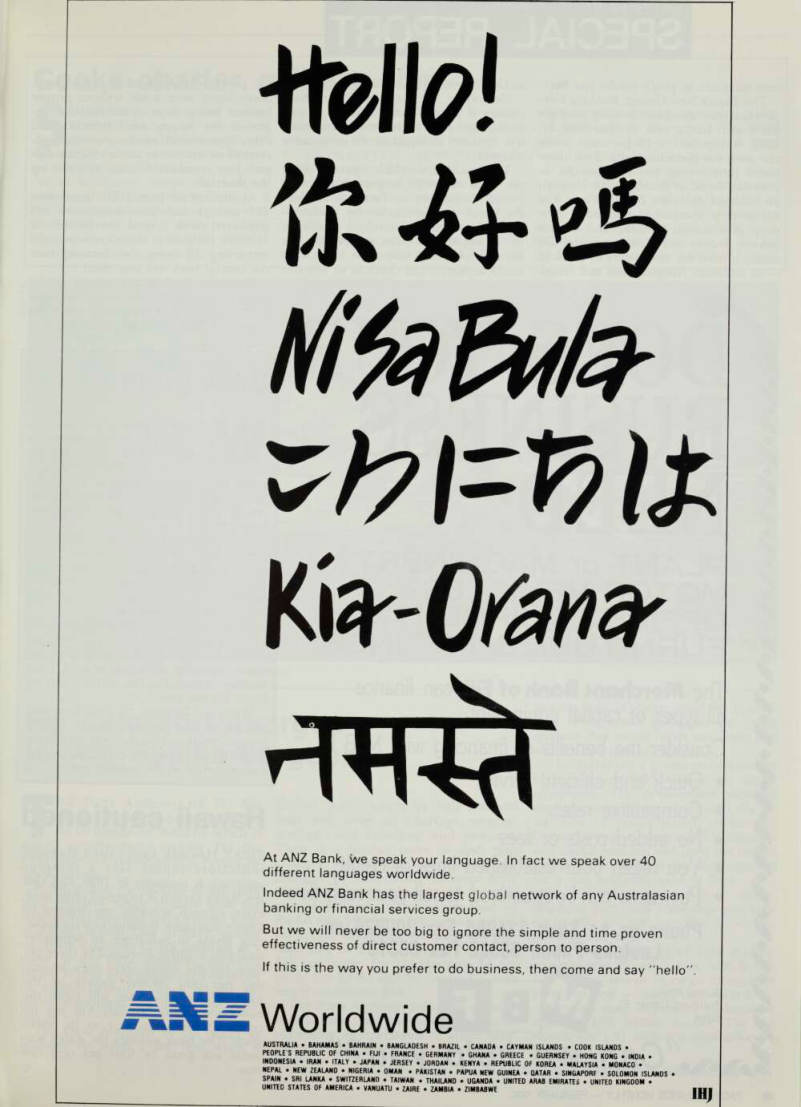 Hello!
你好嗎
Ni Sa Bula
こわにちは
Kia-Orana
नमस्ते
At ANZ Bank, we speak your language. In fact we speak over 40
different languages worldwide.
Indeed ANZ Bank has the largest global network of any Australasian
banking or financial services group.
But we will never be too big to ignore the simple and time proven
effectiveness of direct customer contact, person to person.
If this is the way you prefer to do business, then come and say "hello".
ANZ Worldwide
AUSTRALIA • BAHAMAS • BAHRAIN • BANGLADESH • BRAZIL • CANADA • CAYMAN ISLANDS • COOK ISLANDS •
PEOPLE'S REPUBLIC OF CHINA • FIJI • FRANCE • GERMANY • GHANA • GREECE • GUERNSEY • HONG KONG • INDIA •
INDONESIA • IRAN • ITALY • JAPAN • JERSEY • JORDAN • KENYA • REPUBLIC OF KOREA • MALAYSIA • MONACO •
NEPAL • NEW ZEALAND • NIGERIA • OMAN • PAKISTAN • PAPUA NEW GUINEA • QATAR • SINGAPORE • SOLOMON ISLANDS •
SPAIN • SRI LANKA • SWITZERLAND • TAIWAN • THAILAND • UGANDA • UNITED ARAB EMIRATES • UNITED KINGDOM •
UNITED STATES OF AMERICA • VANUATU • ZAIRE • ZAMBIA • ZIMBABWE
IHJ